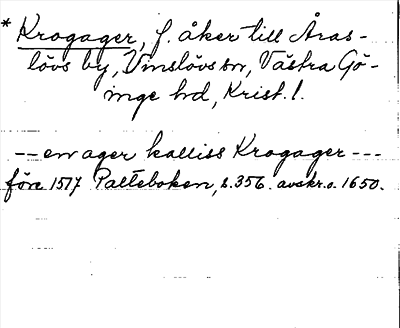 * Krogager, f. åker till Åras-
lövs by, Vinslövs sn, Västra Gö-
inge hd, Krist. l.
-- en ager kalliss Krogager ---
före 1517 Palteboken, s. 356. avskr. o. 1650.